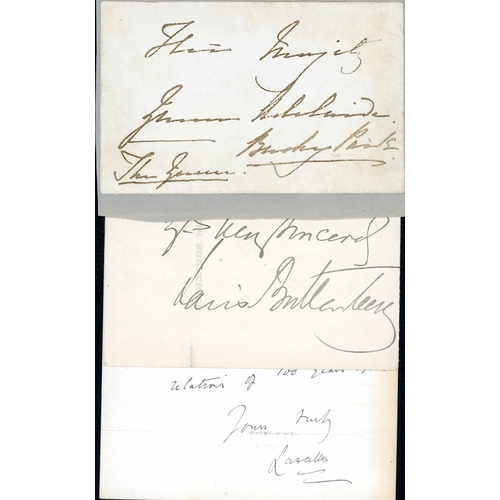 Her Majesty
Queen Adelaide
Bushy Park
The Queen.
Yrs very sincerely
Louis Battenberg
100 years
relations of
Yours truly
Lascelles